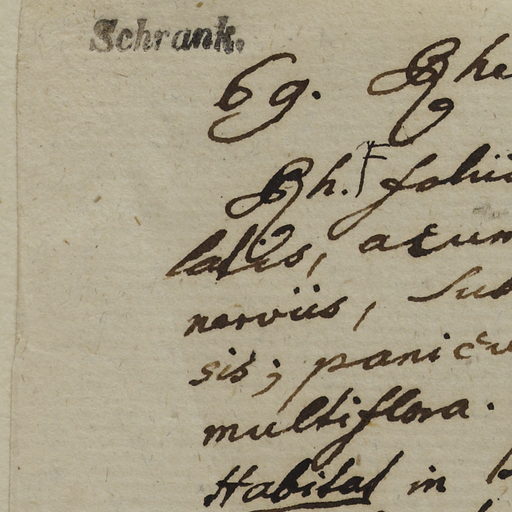 Schrank.
69. Rhe
Rh. foliis
latis, acum
nerviis, sub
sis; panicu
multiflora.
Habitat in